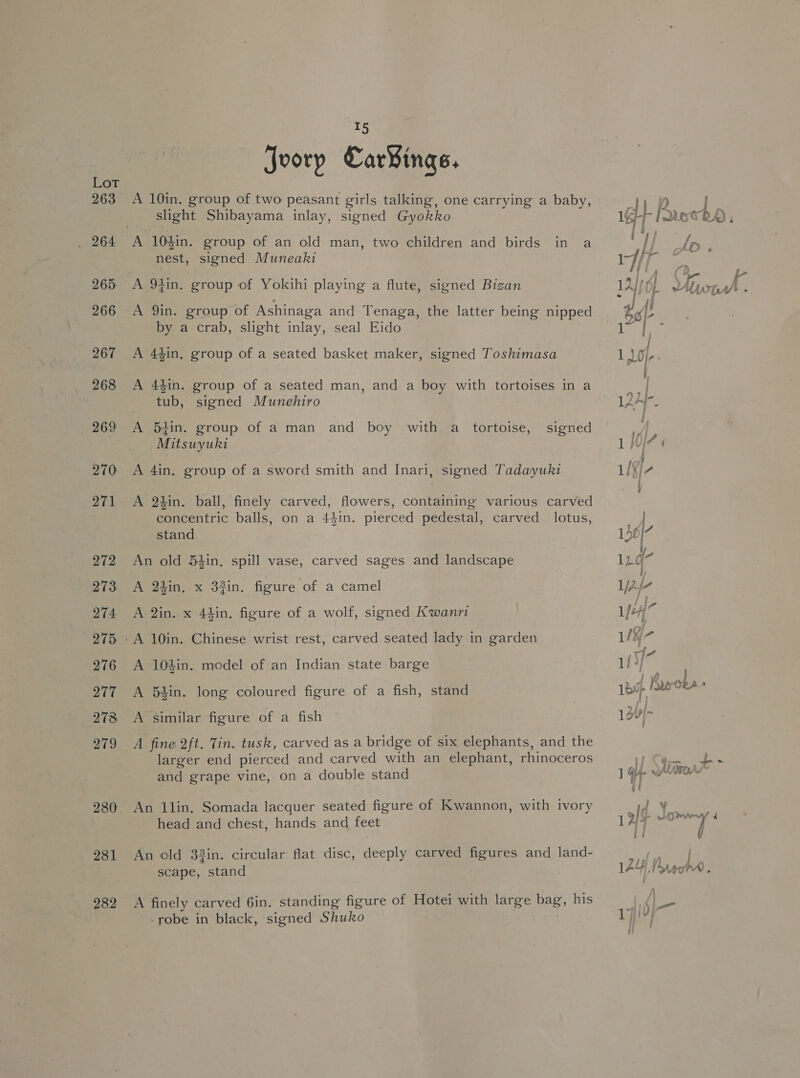 15
Ivory Carvings.
Lot
263 A 10in. group of two peasant girls talking, one carrying a baby,
slight Shibayama inlay, signed Gyokko
264 A 10½in. group of an old man, two children and birds in a
nest, signed Muneaki
265 A 9½in. group of Yokihi playing a flute, signed Bizan
266 A 9in. group of Ashinaga and Tenaga, the latter being nipped
by a crab, slight inlay, seal Eido
267 A 4½in. group of a seated basket maker, signed Toshimasa
268 A 4½in. group of a seated man, and a boy with tortoises in a
tub, signed Munehiro
269 A 5½in. group of a man and boy with a tortoise, signed
Mitsuyuki
270 A 4in. group of a sword smith and Inari, signed Tadayuki
271 A 2½in. ball, finely carved, flowers, containing various carved
concentric balls, on a 4½in. pierced pedestal, carved lotus,
stand
272 An old 5½in. spill vase, carved sages and landscape
273 A 2½in. x 3¾in. figure of a camel
274 A 2in. x 4½in. figure of a wolf, signed Kwanri
275 A 10in. Chinese wrist rest, carved seated lady in garden
276 A 10½in. model of an Indian state barge
277 A 5½in. long coloured figure of a fish, stand
278 A similar figure of a fish
279 A fine 2ft. 7in. tusk, carved as a bridge of six elephants, and the
larger end pierced and carved with an elephant, rhinoceros
and grape vine, on a double stand
280 An 11in. Somada lacquer seated figure of Kwannon, with ivory
head and chest, hands and feet
281 An old 3¾in. circular flat disc, deeply carved figures and land-
scape, stand
282 A finely carved 6in. standing figure of Hotei with large bag, his
robe in black, signed Shuko